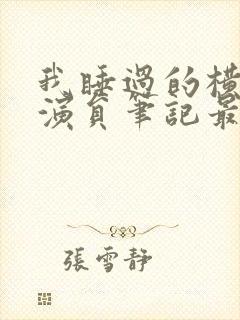 我睡過的橫
演員筆記最
張雪靜